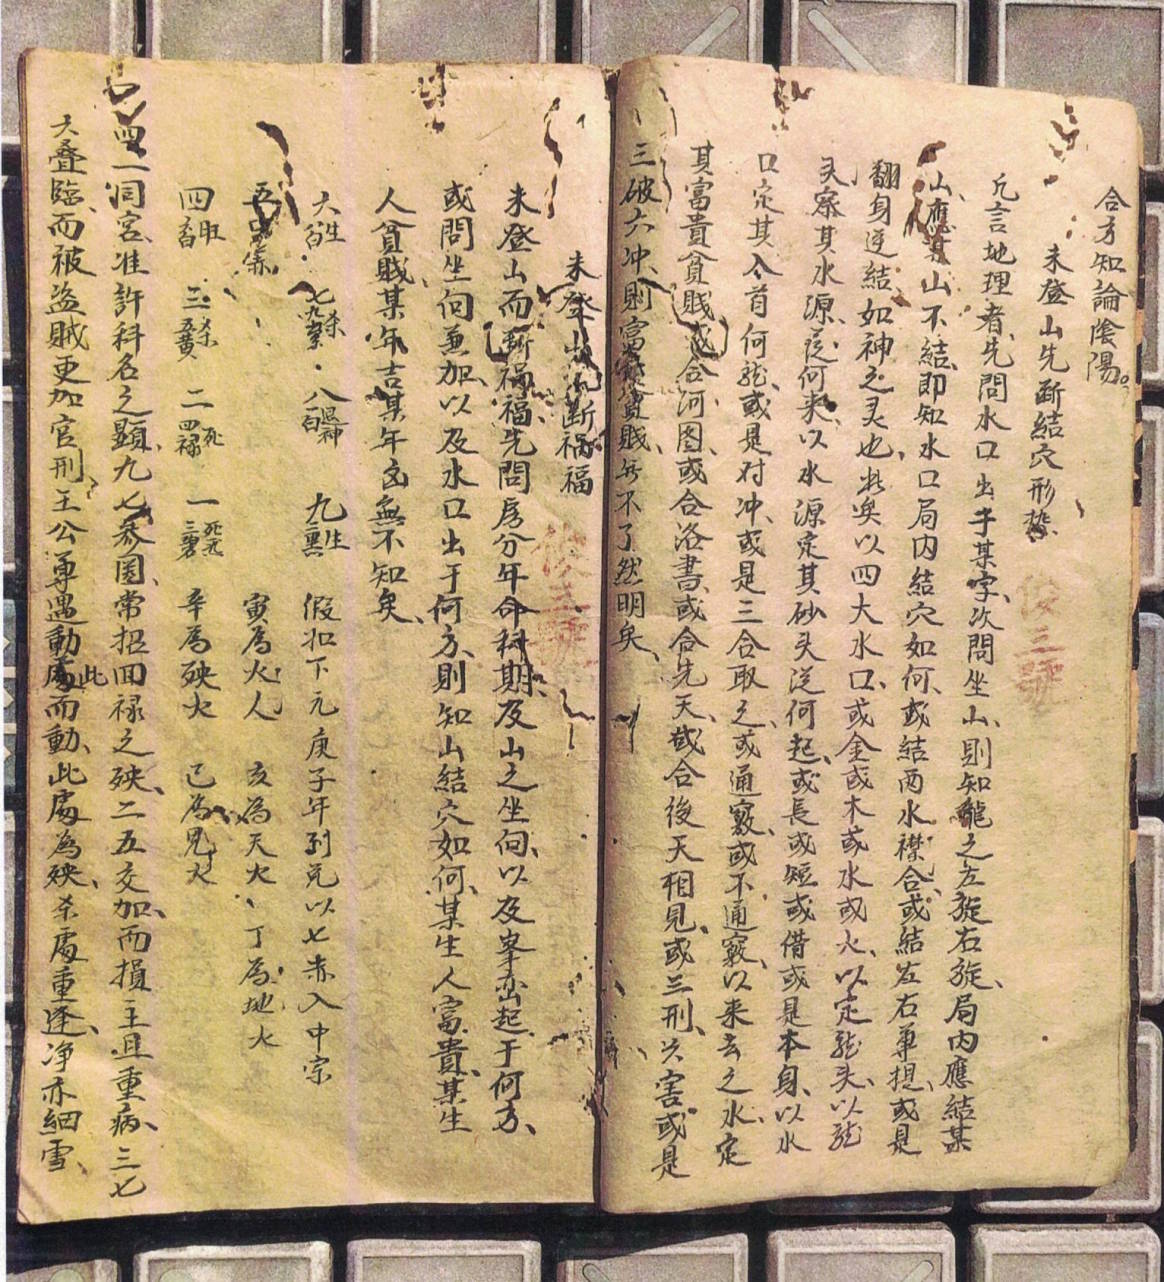 合方知論陰陽。
未登山先斷結穴形勢
凡言地理者、先問水口出于某字、次問坐山、則知龍之左旋右旋、局内應結某
山、應某山不結、即知水口局内結穴如何、或結两水襟合、或結左右单提、或是
翻身逆結、如神之灵也、 以四大水口、或金或木或水或火、以定龙头、以龙
头察其水源、從何来、以水源定其砂头從何起、或長或短或借或是本身、以水
口定其入首何龙、或是对冲、或是三合取之、或通竅、或不通竅、以来去之水、定
其富貴貧賤、或合河图、或合洛書、或合先天、或合後天相見、或三刑、六害、或是
三破六冲、則富貴貧賤、無不了然明矣、
未登山先断禍福
未登山而斷禍福、先問房分年命科期、及山之坐向、以及峯峦起于何方、
或問坐向兼加、以及水口出于何方、則知山結穴如何、某生人富貴、某生
人貧賤、某年吉某年凶、無不知矣、
六白生 七赤杀 八白退神 九黑生 假如下元庚子年到兑以七赤入中宗
寅為火人 亥為天火 丁為地火
四 三 杀 二 四禄死 一 三碧死 辛為殃火 己為鬼火
四一同宫、准許科名之顯、九七叅圖、常招回禄之殃、二五交加、而損主且重病、三七
大叠臨、而被盗賊更加官刑、王公尊遇動處而動、此處為殃、杀處重逢、净亦細雪、
此